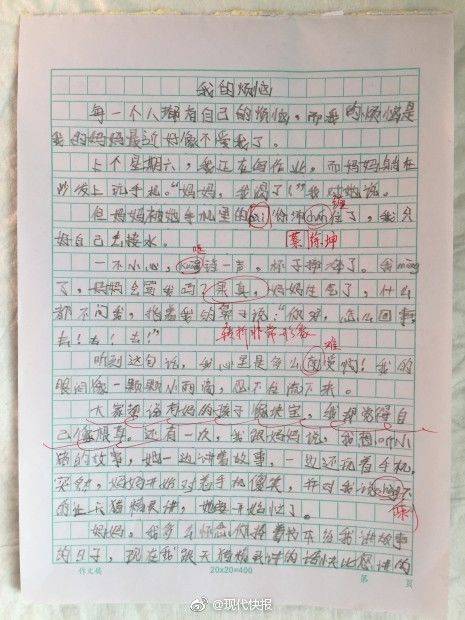 我的烦恼
每一个人都有自己的烦恼，而我的烦恼是
我的妈妈最近好像不爱我了。
上个星期六，我正在写作业，而妈妈躺在
沙发上玩手机。“妈妈，我渴了！”我对她说。
但妈妈被她手机里的 你 住了，我只
缠
好自己去接水。
蔡徐坤
一不小心， 一声，杯子摔碎了。我
了，妈妈会骂我吗？果真，妈妈生气了，什么
都不问我，指着我的鼻子说：“你呀，怎么回事，
去！去！去！”
转折非常形象
难
听到这句话，我心里是多么 受啊！我的
眼泪像一颗颗小雨滴，忍不住流下来。
大家都说有妈的孩子像块宝，我却觉得自
己像根草。还有一次，我跟妈妈说，我想听小
猪的故事，她一边讲着故事，一边还玩着手机，
突然，妈妈开始对着手机傻笑，并对我说
让天猫精灵讲，她
陪
妈妈，我多么怀念 给我讲故事
的日子，现在我跟天猫精灵讲的话 比您讲的
作文稿
20x20=400
第 页
@现代快报